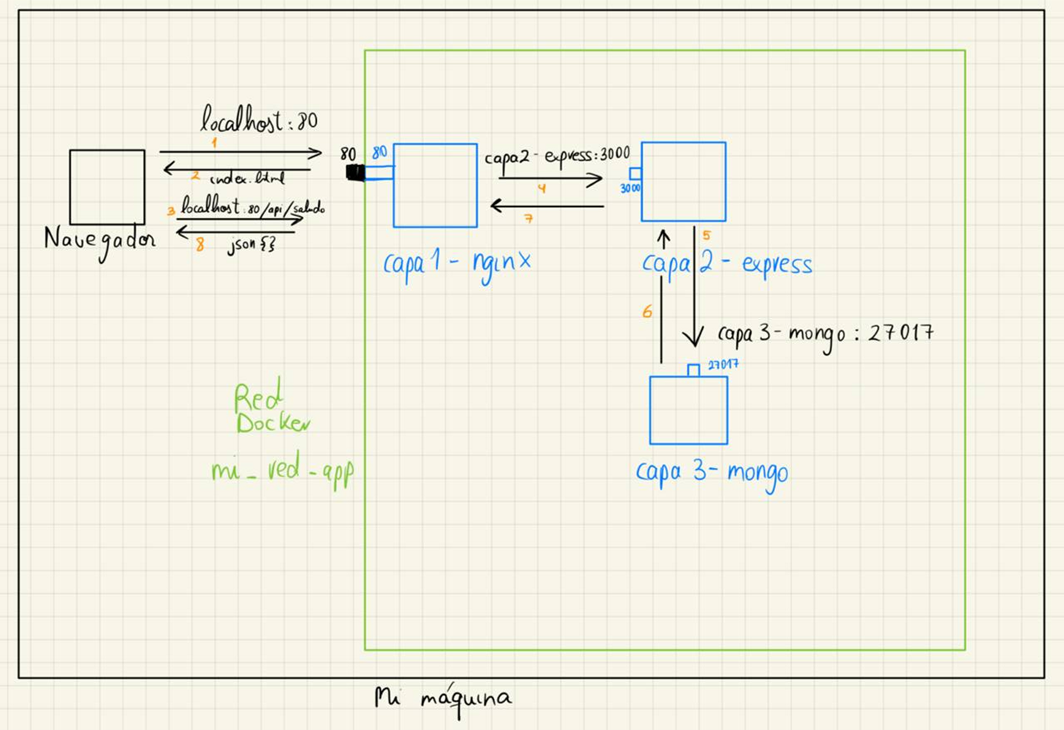 localhost:80
1
2
index.html
3
localhost:80/api/saludo
8
json {}
Navegador
80
80
capa 1 - nginx
capa2 - express:3000
4
7
3000
capa 2 - express
5
6
capa 3 - mongo : 27017
27017
capa 3 - mongo
Red
Docker
mi_red_app
Mi máquina